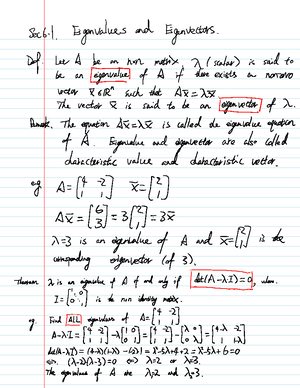 Sec 6.1. Eigenvalues and Eigenvectors.
Def. Let A be an nxn matrix, λ (scalar) is said to
be an eigenvalue of A if there exists a nonzero
vector x∈ℝⁿ such that Ax=λx.
The vector x is said to be an eigenvector of λ.
Remark. The equation Ax=λx is called the eigenvalue equation
of A. Eigenvalue and eigenvector are also called
characteristic value and characteristic vector.
eg A=[4 -2; 1 1] x=[2; 1]
Ax=[6; 3]=3[2; 1]=3x
λ=3 is an eigenvalue of A and x=[2; 1] is the
corresponding eigenvector (of 3).
Theorem λ is an eigenvalue of A if and only if det(A-λI)=0, where
I= is the nxn identity matrix.
eg. Find ALL eigenvalues of A=[4 -2; 1 1]
A-λI=[4 -2; 1 1]-λ[1 0; 0 1]=[4 -2; 1 1]-[λ 0; 0 λ]=[4-λ -2; 1 1-λ]
det(A-λI)=(4-λ)(1-λ)-(-2)1=λ²-5λ+4+2=λ²-5λ+6=0
⇔ (λ-2)(λ-3)=0 ⇔ λ=2 or λ=3.
The eigenvalues of A are λ=2 and λ=3.